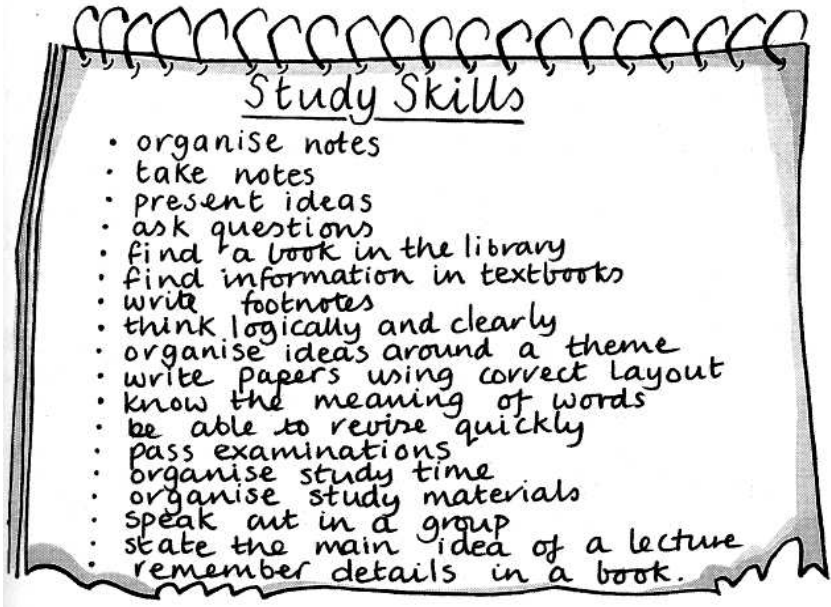 Study Skills
• organise notes
• take notes
• present ideas
• ask questions
• find a book in the library
• find information in textbooks
• write footnotes
• think logically and clearly
• organise ideas around a theme
• write papers using correct layout
• know the meaning of words
• be able to revise quickly
• pass examinations
• organise study time
• organise study materials
• speak out in a group
• state the main idea of a lecture
• remember details in a book.